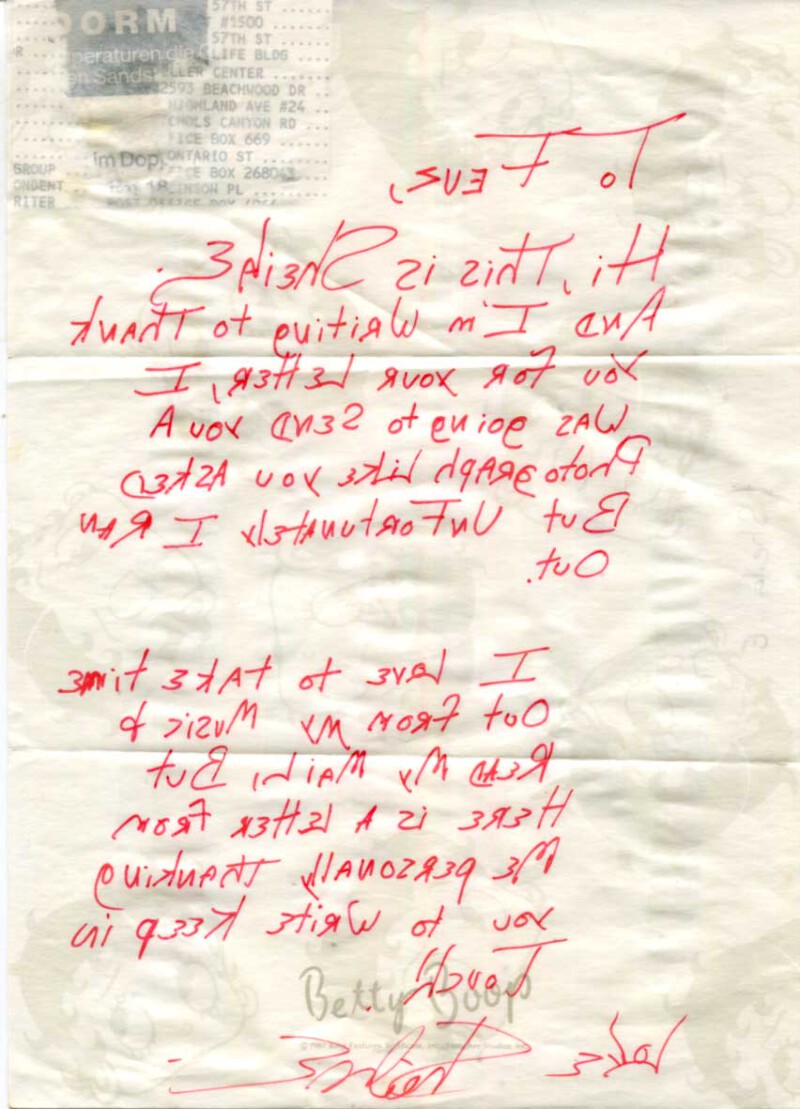 57TH ST
DORM #1500
57TH ST
R peraturen die LIFE BLDG
en Sands LLER CENTER
2593 BEACHWOOD DR
HIGHLAND AVE #24
CHOLS CANYON RD
ICE BOX 669
im Dop ONTARIO ST
GROUP CE BOX 268043
ONDENT INSON PL
RITER
To
Hi, This is Sheila E.
And I'm Writing to Thank
You For your Letter, I
Was going to Send you A
Photograph Like you Asked
But Unfortunately I Ran
Out.
I love to take time
Out From My Music to
Read My Mail, But
Here is A letter From
Me personally Thanking
you to Write Keep in
Touch.
Betty Boop
Love